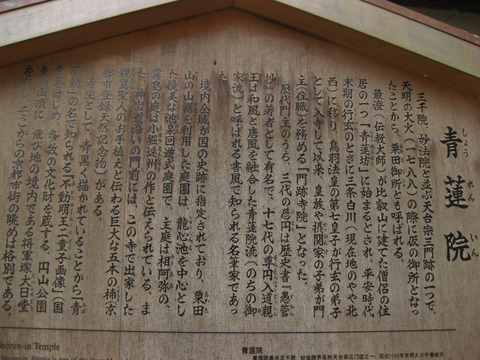 青蓮院
しょう れん いん
三千院、妙法院と並ぶ天台宗三門跡の一つで、
天明の大火(一七八八)の際に仮の御所となっ
たことから、粟田御所とも呼ばれる。
最澄(伝教大師)が比叡山に建てた僧侶の住
居の一つ「青蓮坊」に始まるとされ、平安時代
末期の行玄のときに三条白川(現在地のやや北
西)に移り、鳥羽法皇の第七皇子が行玄の弟子
として入寺して以来、皇族や摂関家の子弟が門
主(住職)を務める「門跡寺院」となった。
歴代門主のうち、三代の慈円は歴史書『愚管
抄』の著者として有名で、十七代の尊円入道親
王は和風と唐風を融合した青蓮院流(のちの御
家流)と呼ばれる書風で知られる名筆家であっ
た。
境内全域が国の史跡に指定されており、粟田
山の山裾を利用した庭園は、龍心池を中心とし
た優美な池泉回遊式の庭園で、主庭は相阿弥の、
霧島の庭は小堀遠州の作と伝えられている。ま
た、神宮道沿いの門前には、この寺で出家した
親鸞聖人のお手植えと伝わる巨大な五本の楠(京
都市登録天然記念物)がある。
寺宝として、青黒く描かれていることから「青
不動」の名で知られる「不動明王二童子画像(国
宝)をはじめ、多数の文化財を蔵する。円山公園
東の山頂に、飛び地の境内である将軍塚大日堂
があり、ここからの京都市街の眺めは格別である。
Shoren-in Temple
青蓮院